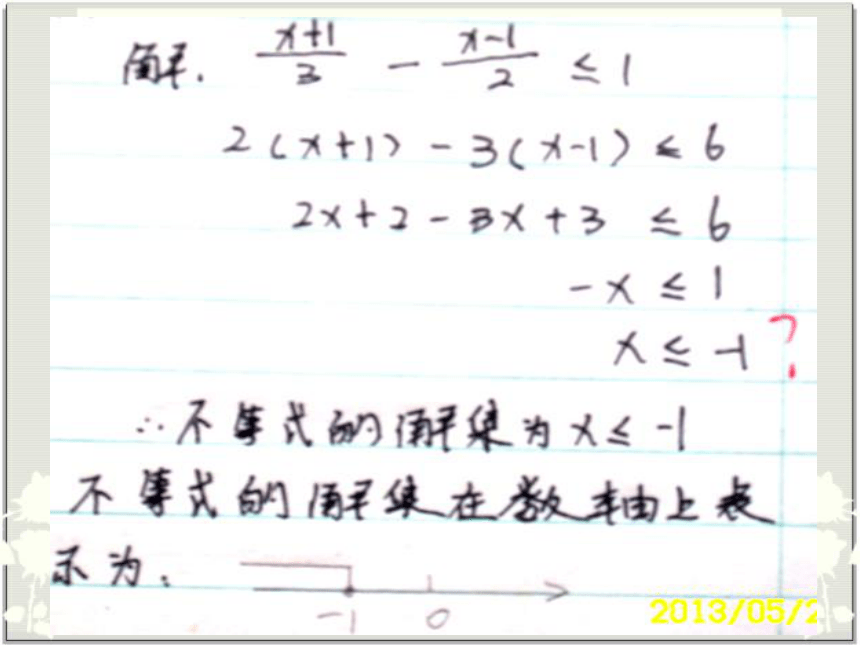 解. (x+1)/3 - (x-1)/2 ≤ 1
2(x+1) - 3(x-1) ≤ 6
2x+2-3x+3 ≤ 6
-x ≤ 1
x ≤ -1 ?
∴不等式的解集为 x≤ -1
不等式的解集在数轴上表
示为:
-1 0
2013/05/2